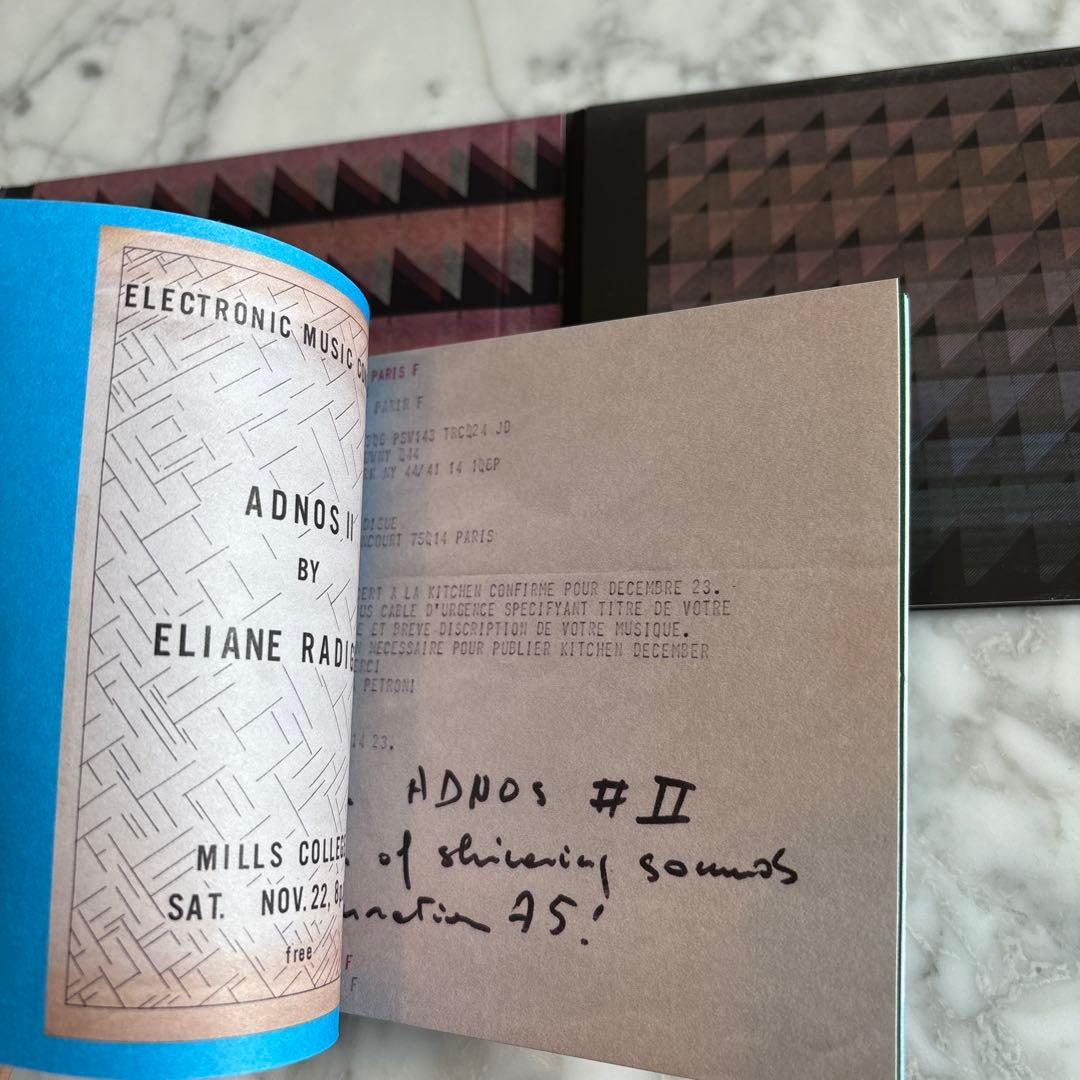 ELECTRONIC MUSIC
ADNOS II
BY
ELIANE
MILLS
SAT. NOV. 22,
free
PARIS F
PARIS F
PSW143 TRCQ24 JD
Q44
NY 44/41 14
75Q14 PARIS
A LA KITCHEN CONFIRME POUR DECEMBRE 23. -
CABLE D'URGENCE SPECIFYANT TITRE DE VOTRE
ET BREVE DISCRIPTION DE VOTRE MUSIQUE.
NECESSAIRE POUR PUBLIER KITCHEN DECEMBER
PETRONI
23.
ADNOS # II
of shivering sounds
75!
F
F